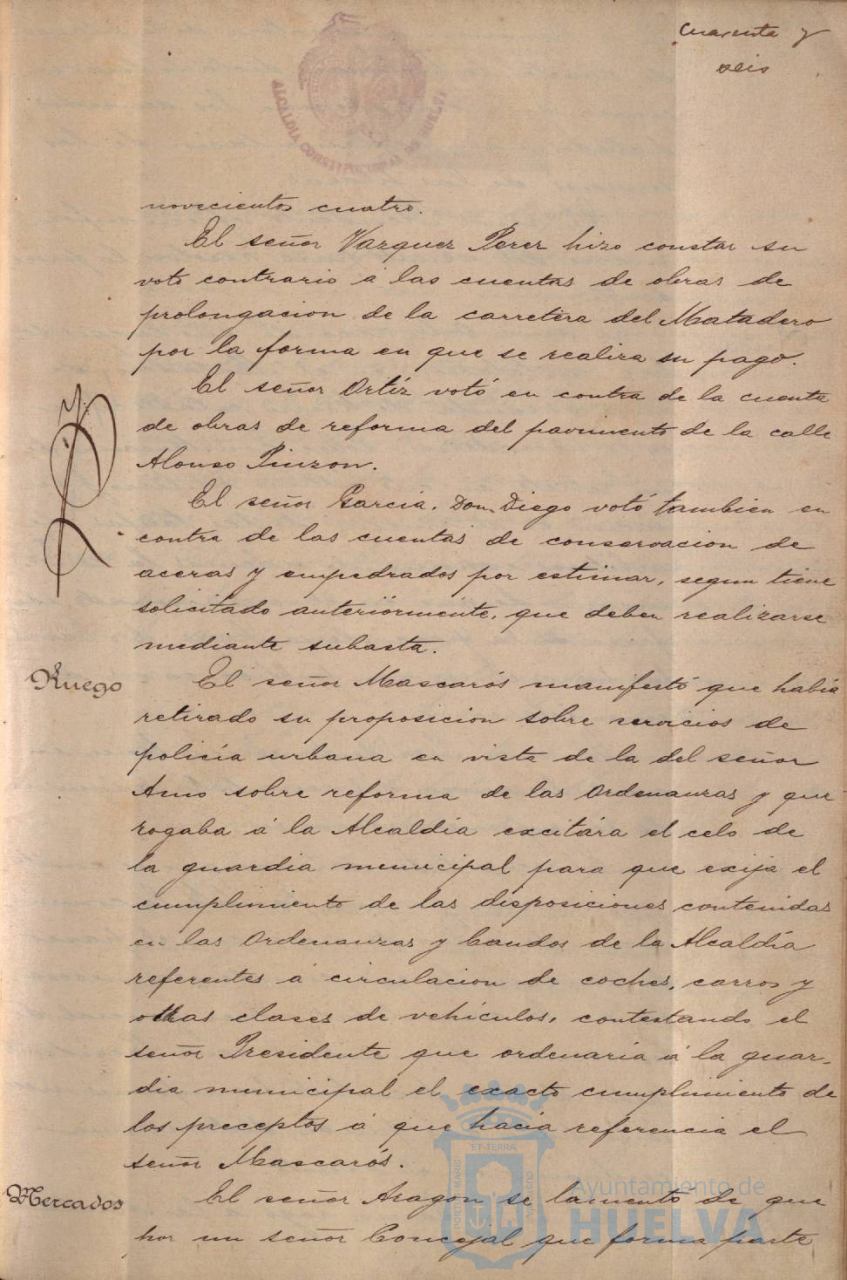 Cuarenta y
seis
ALCALDIA CONSTITUCIONAL DE HUELVA
novecientos cuatro.
El señor Vazquez Perez hizo constar su
voto contrario á las cuentas de obras de
prolongacion de la carretera del Matadero
por la forma en que se realiza su pago.
El señor Ortíz votó en contra de la cuenta
de obras de reforma del pavimento de la calle
Alonso Pinzon.
El señor Garcia, Don Diego votó tambien en
contra de las cuentas de conservacion de
aceras y empedrados por estimar, segun tiene
solicitado anteriormente, que deben realizarse
mediante subasta.
Ruego
El señor Mascarós manifestó que habia
retirado su proposicion sobre servicios de
policía urbana en vista de la del señor
Amo sobre reforma de las Ordenanzas y que
rogaba á la Alcaldía excitára el celo de
la guardia municipal para que exija el
cumplimiento de las disposiciones contenidas
en las Ordenanzas y bandos de la Alcaldía
referentes á circulacion de coches, carros y
otras clases de vehículos, contestando el
señor Presidente que ordenaria á la guar-
dia municipal el exacto cumplimiento de
los preceptos á que hacia referencia el
señor Mascarós.
Mercados
El señor Aragon se lamentó de que
por un señor Concejal que forma parte
ET·TERRA
Ayuntamiento de
HUELVA